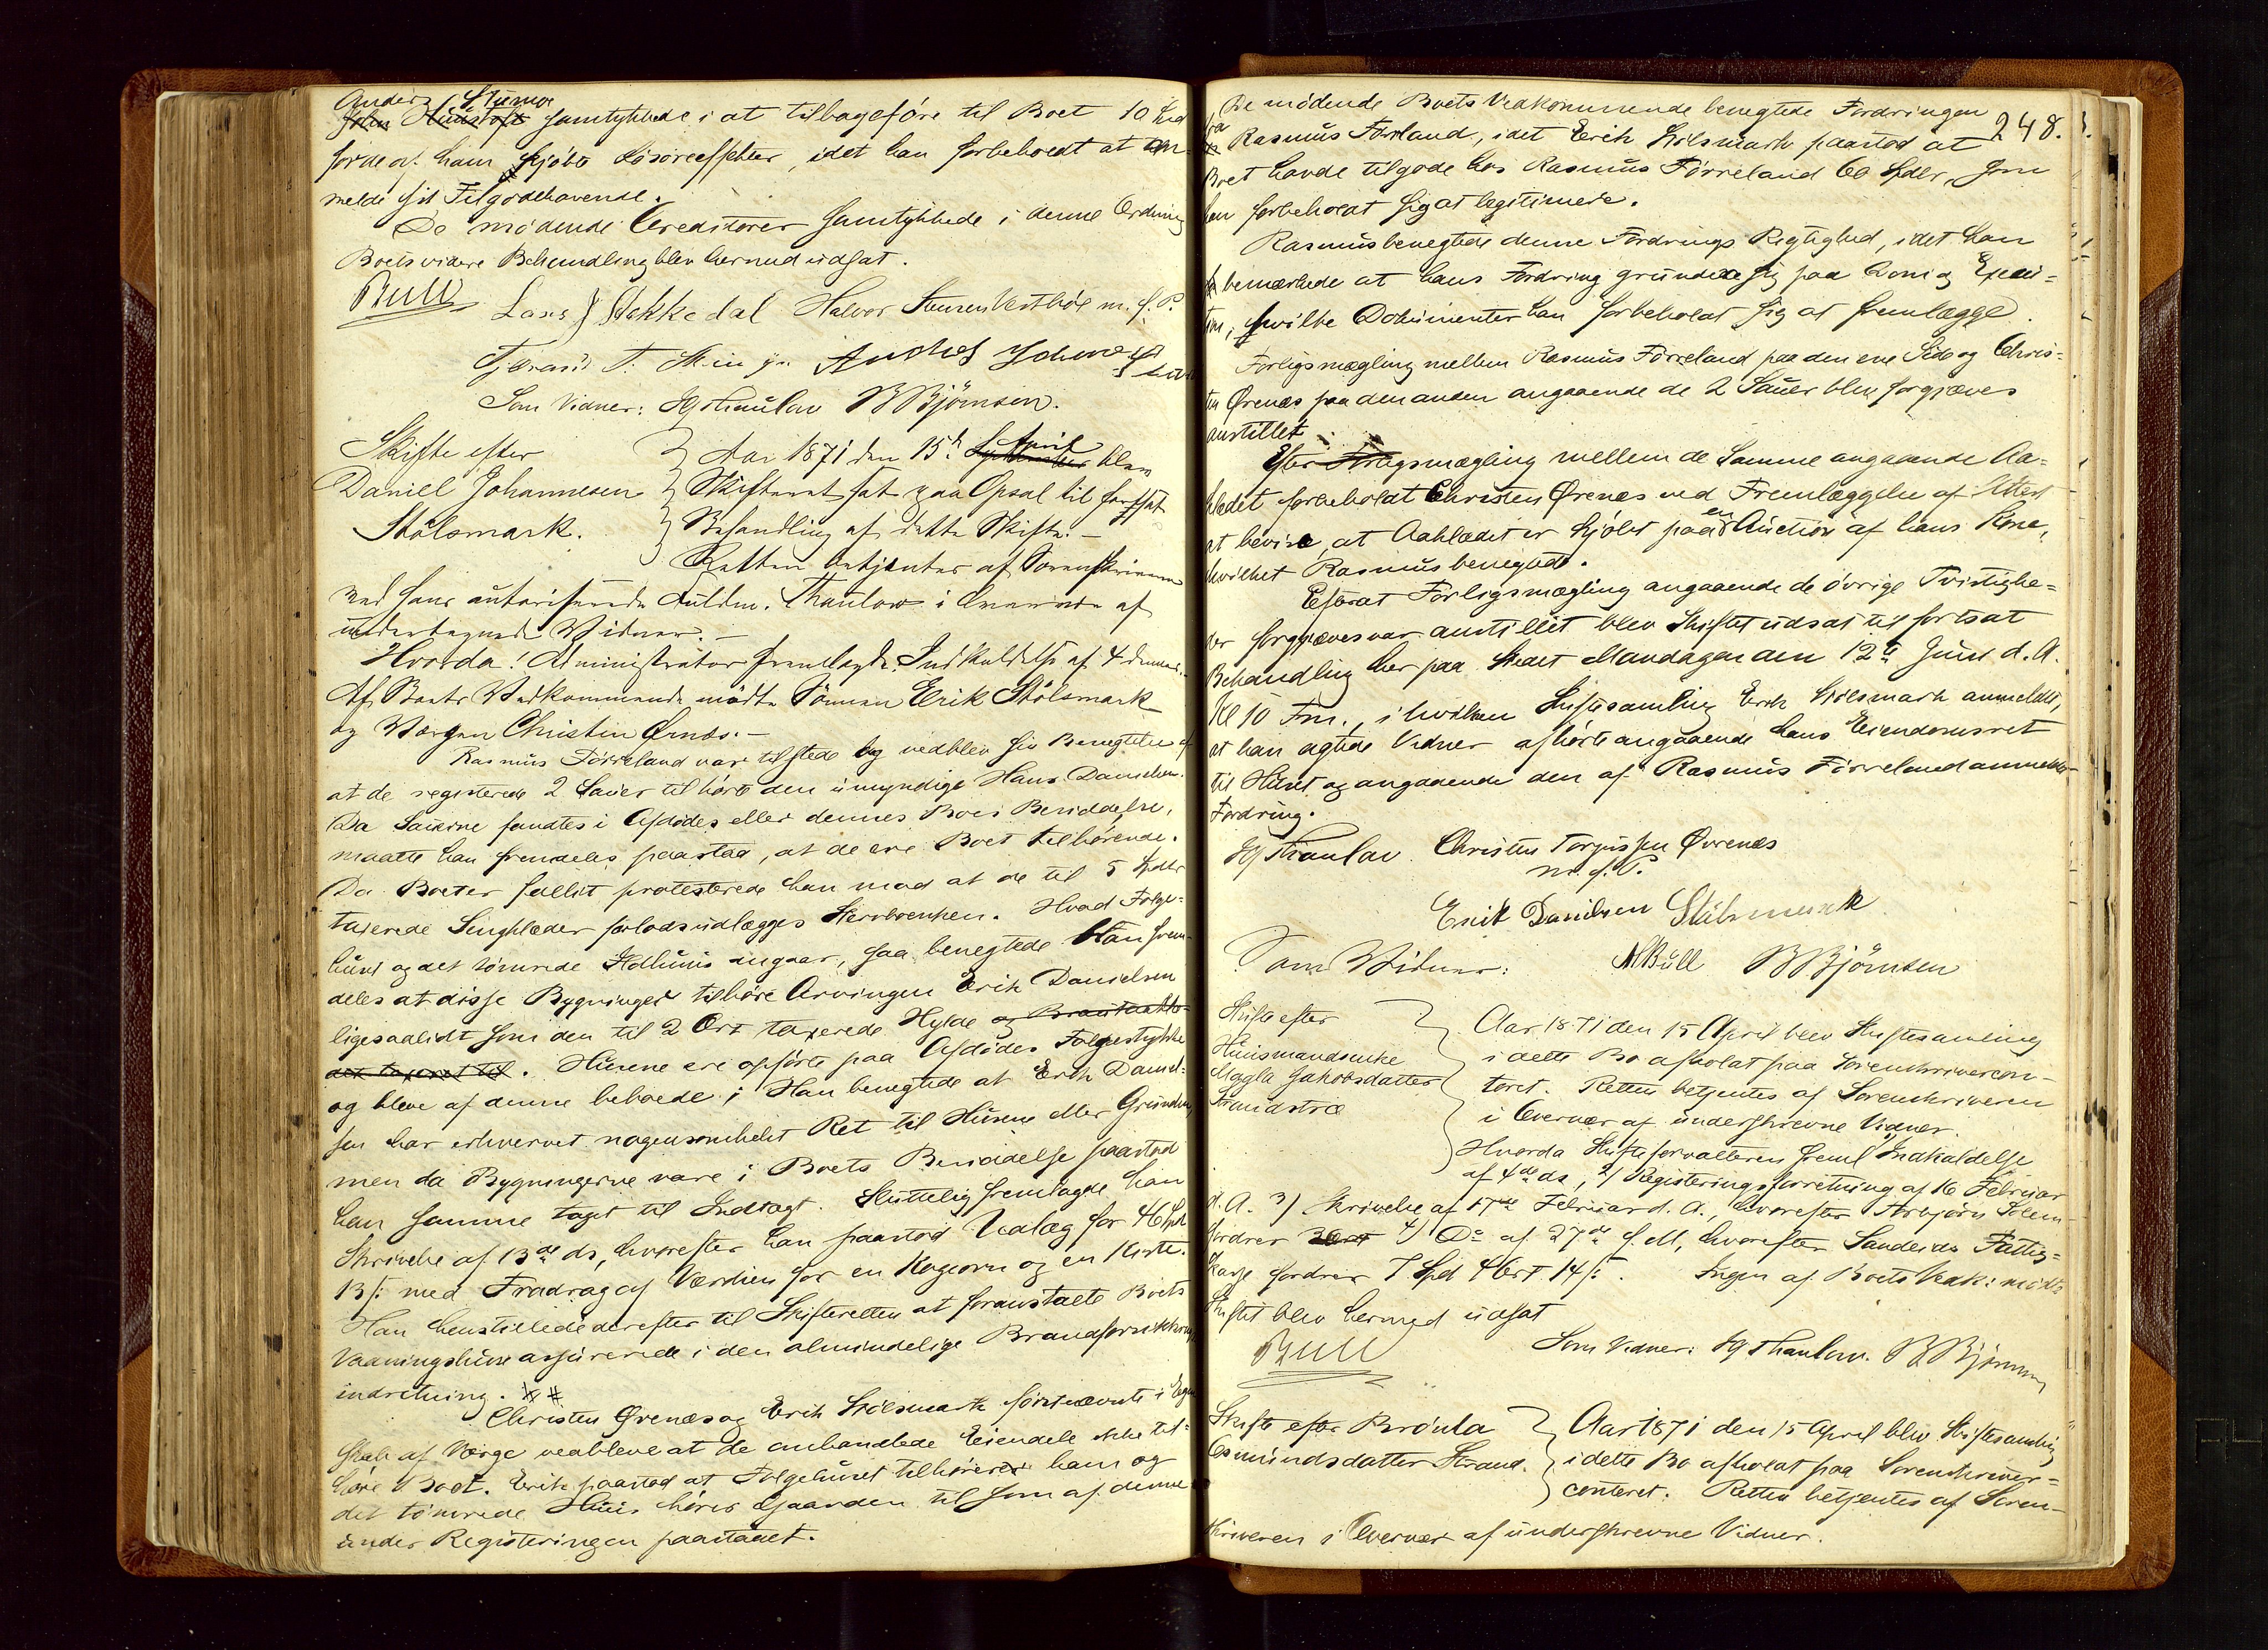 Anders Stumoe
samtykkede i at tilbageføre til Boet 10 Spd
for de af ham kjøbte Løsøreeffekter, idet han forbeholdt at an-
melde sit Tilgodehavende.
De mødende Creditorer samtykkede i denne Ordning
Boets videre Behandling blev hermed udsat.
Bull Lars Stakkedal Halvor Steensen Vestbøe m. f. P.
Som Vidner: Hg Thaulow B Bjørnsen.
Skifte efter
Daniel Johannesen
Stølsmark.
Aar 1871 den 15de April blev
Skifteret sat paa Opsal til fortsat
Behandling af dette Skifte.-
Retten betjentes af Sorenskriveren
ved hans autoriserede Fuldm. Thaulow i Overvær af
undertegnede Vidner.-
Hvorda! Administrator fremlagde Indkaldelse af 4 dennes.
Af Boets Vedkommende mødte Sønnen Erik Stølsmark
og Værgen Christen Ørenæs.-
Rasmus Førreland var tilstede og vedblev sin Benegtelse af
at de registerede 2 Sauer tilhørte den umyndige Hans Danielsen.
Da Sauerne fandtes i Afdødes eller dennes Boes Besiddelse,
maatte han fremdeles paastaa, at de ere Boet tilhørende.
Da Boet er fallit protesterede han mod at de til 5 Spdlr
taxerede Sengklæder forlods udlægges Stervboenken. Hvad Følge-
huset og det tømrede Ildhuus angaar, saa benegtede han frem-
deles at disse Bygninger tilhøre Arvingen Erik Danielsen
ligesaalidt som den til 2 Ort taxerede Hylde og
det taxeret til. Husene ere opførte paa Afdødes Følgestykke
og bleve af denne beboede. Han benegtede at Erik Daniel-
sen har erhvervet nogensomhelst Ret til Husene eller Grunden
men da Bygningerne vare i Boets Besiddelse paastod
han samme taget til Indtægt. Sluttelig fremlagde han
Skrivelse af 13de ds, hvorefter han paastod Udlæg for 46 Spd
13 s: med Fradrag af Værdien for en Kogeovn og en Kiste.
Han henstillede derefter til Skifteretten at foranstalte Boets
Vaaningshuse assurerede i den almindelige Brandforsikkrings
indretning. ##
Christen Ørenæs og Erik Stølsmark førstnævnte i Egen-
skab af Værge vedbleve at de omhandlede Eiendele ikke til-
høre Boet. Erik paastod at Følgehuset tilhører ham og
det tømrede Huus hører Gaarden til som af denne
under Registeringen paastaaet.
248.
De mødende Boets Vedkommende benegtede Fordringen
fra Rasmus Førreland, idet Erik Stølsmark paastod at
Boet havde tilgode hos Rasmus Førreland 60 Spdlr, som
han forbeholdt sig at legitimere.
Rasmus benegtede denne Fordrings Rigtighed, idet han
bemærkede at hans Fordring grundede sig paa Dom og Execu-
tion, hvilke Dokumenter han forbeholdt sig at fremlægge.
Forligsmægling mellem Rasmus Førreland paa den ene Side og Chris-
ten Ørenæs paa den anden angaaende de 2 Sauer blev forgjæves
anstillet.
Efter Forligsmægling mellem de Samme angaaende Aa-
klædet forbeholdt Christen Ørenæs ved Fremlæggelse af Attest
at bevise, at Aaklædet er kjøbt paa en Auction af hans Kone,
hvilket Rasmus benegtede.
Efterat Forligsmægling angaaende de øvrige Tvistighe-
der forgjæves var anstillet blev Skiftet udsat til fortsat
Behandling her paa Stedet Mandagen den 12te Juni d. A.
Kl 10 Fm., i hvilken Skiftesamling Erik Stølsmark anmeldte,
at han agtede Vidner afhørte angaaende hans Eiendomsret
til Huset og angaaende den af Rasmus Førreland anmeldte
Fordring.
Hg Thaulow Christen Torgussen Ørenæs
m. f. P.
Erik Danielsen Stølsmark
Som Vidner: NBull B Bjørnsen
Skifte efter
Huusmandsenke
Magla Jakobsdatter
Sandstræ
Aar 1871 den 15 April blev Skiftesamling
i dette Bo afholdt paa Sorenskrivercon-
toret. Retten betjentes af Sorenskriveren
i Overvær af underskrevne Vidner.
Hvorda Skifteforvalteren freml. 1) Indkaldelse
af 4de ds, 2) Registeringsforretning af 16 Februar
d. A. 3) Skrivelse af 17de Februar d. A., hvorefter Torbjørn
fordrer 4) Do af 27de f. M, hvorefter Sandeids Fattig-
kasse fordrer 7 Spd 4 Ort 14 s:. Ingen af Boets Vedk: mødte
Skiftet blev hermed udsat
Bull Som Vidner: Hg Thaulow. B Bjørnsen
Skifte efter Brønla
Osmundsdatter Strand.
Aar 1871 den 15 April blev Skiftesamling
i dette Bo afholdt paa Sorenskriver-
contoret. Retten betjentes af Soren-
skriveren i Overvær af underskrevne Vidner.